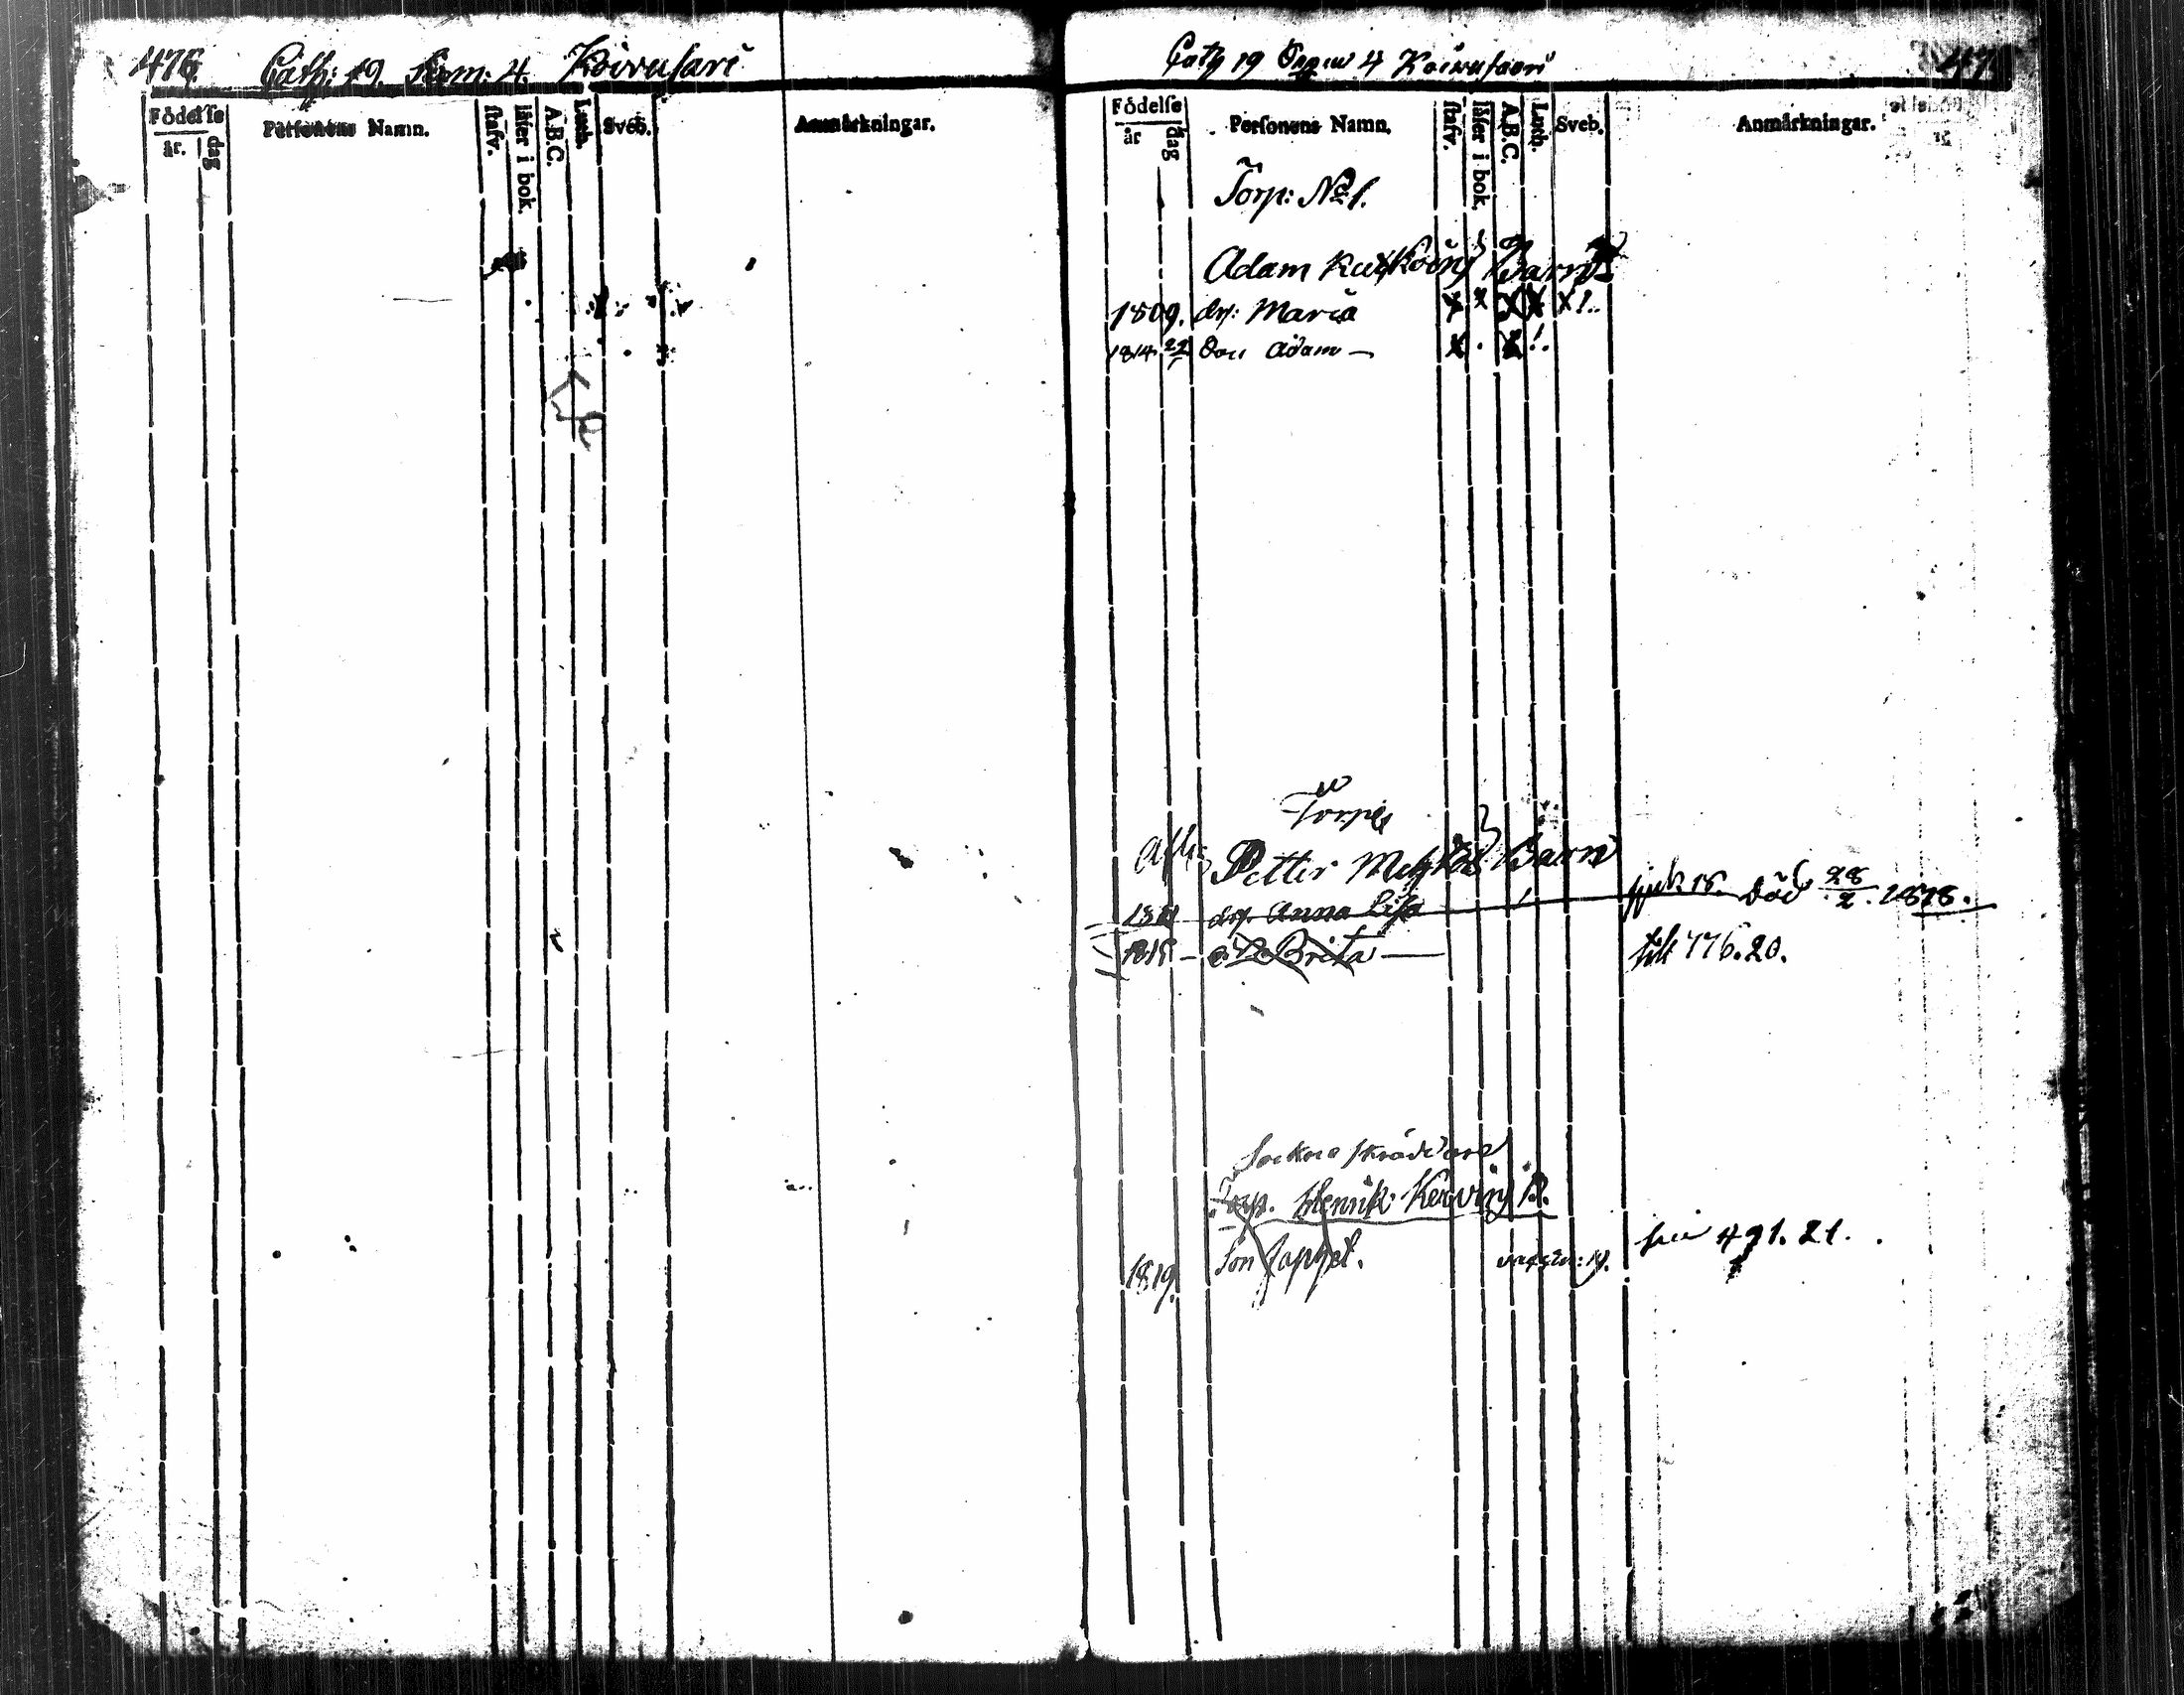 476. Cath: 19. Rom: 4. Koivusari
Födelse
år. dag
Personens Namn.
stafv.
läser i bok.
A.B.C.
Luth.
Sveb.
Anmärkningar.
Cath 19 4 Koivusaari
Födelse
år dag
Personens Namn.
stafv.
läser i bok.
A.B.C.
Luth.
Sveb.
Anmärkningar.
Torp: No 1.
Adam Barn
1809. dr: Maria x x x x x !..
1814. 22 Son Adam — x . x !.
Torp
Petter Barn
dr. Anna Lisa död 28/2. 1818.
1815 — Brita — till 776.20.
Sockne skräddare
Torp. Henrik B.
1819. Son Japhet. 19. 491. 21.